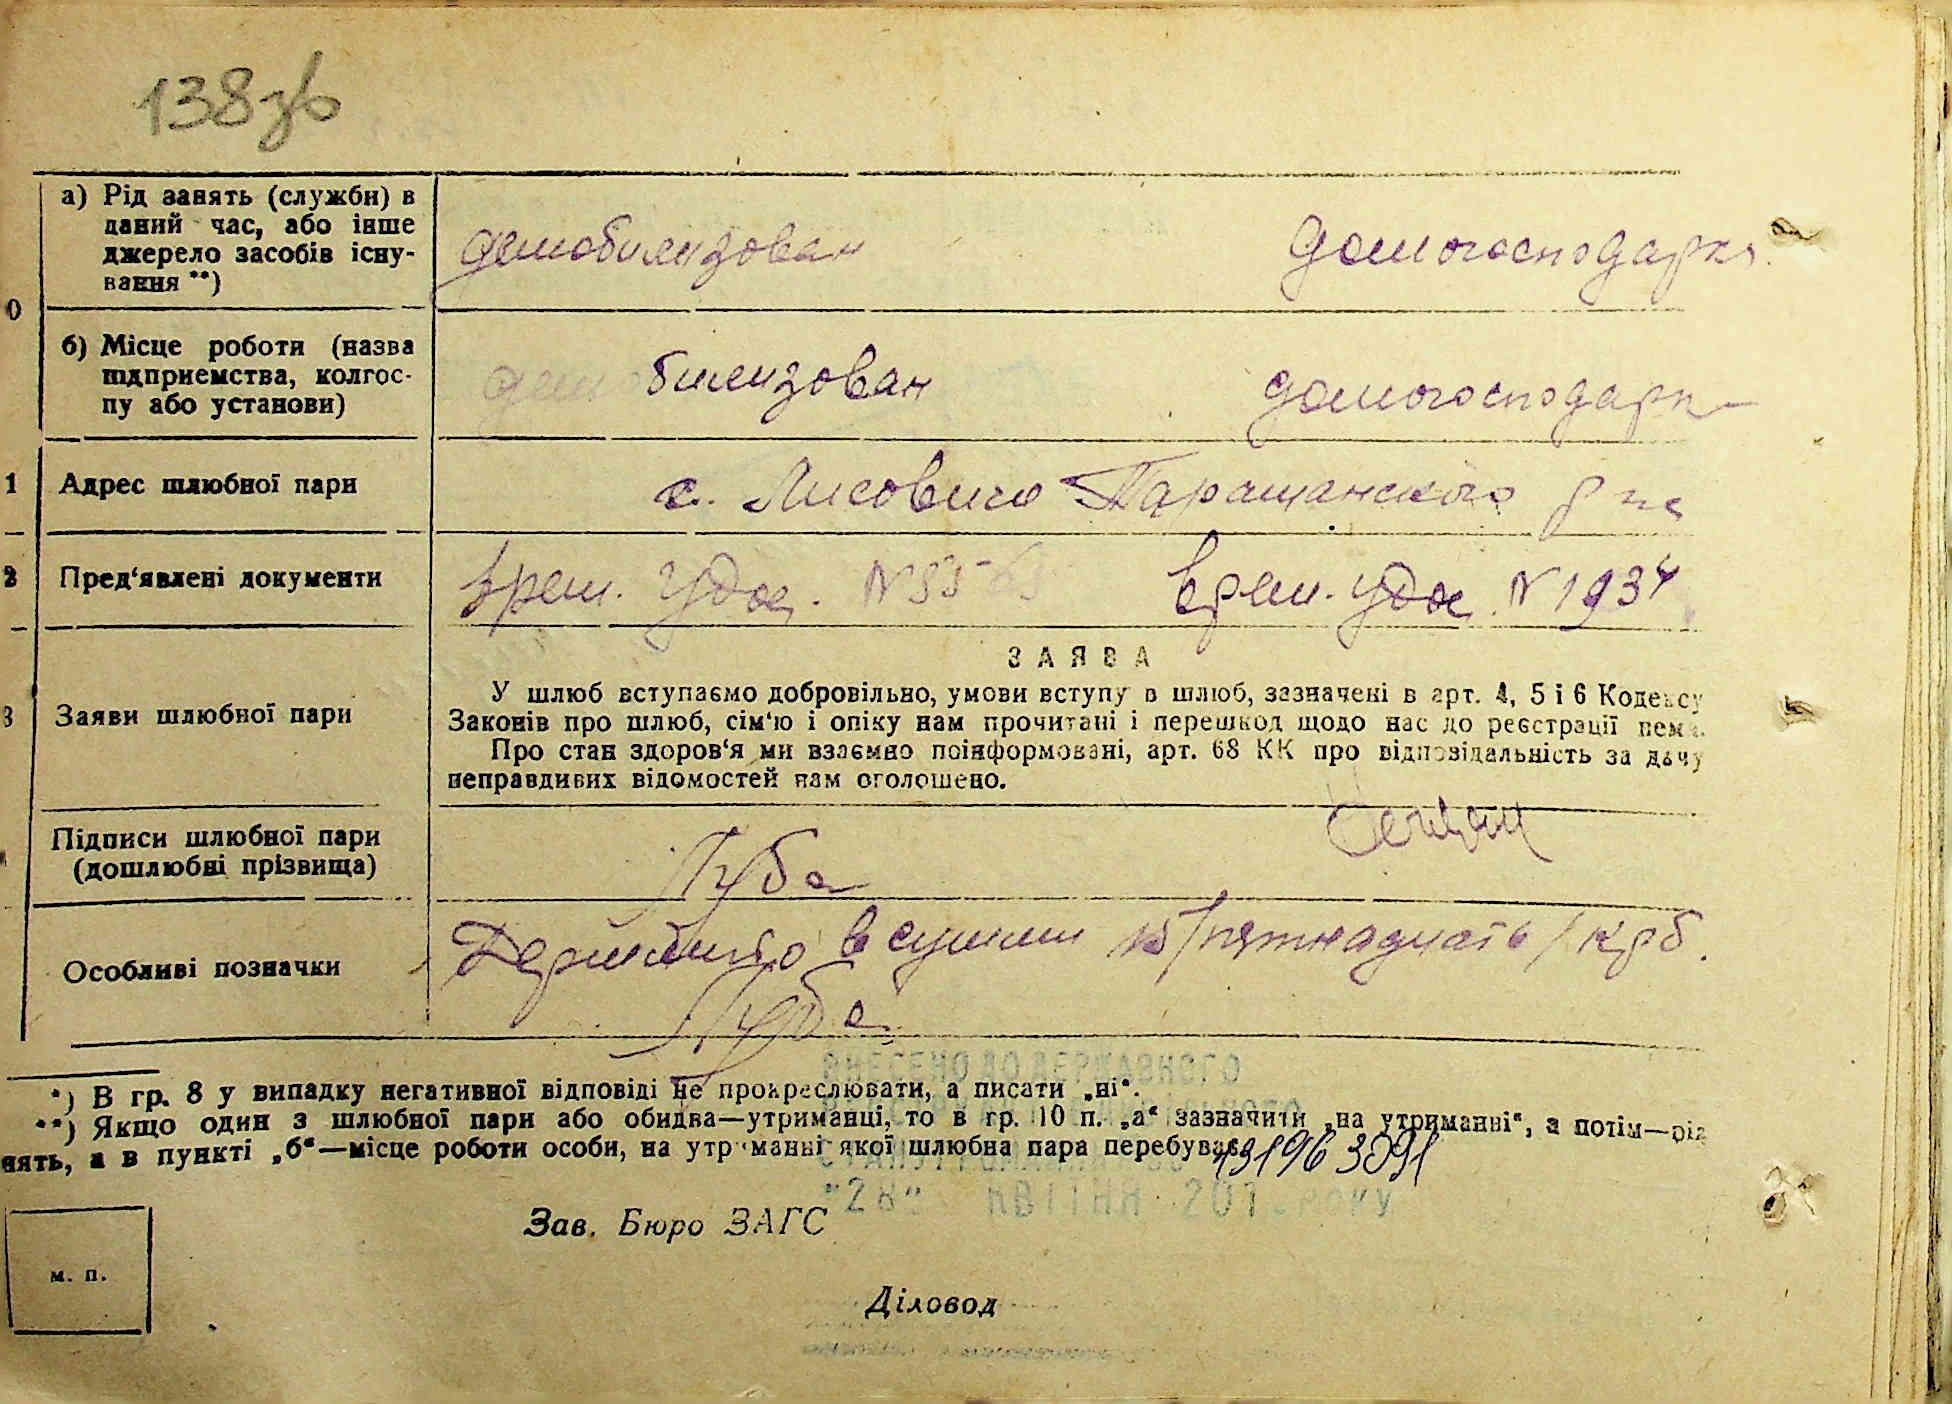 138зв
а) Рід занять (служби) в
даний час, або інше
джерело засобів існу-
вання **)
демобилизован домогосподарка
0
б) Місце роботи (назва
підприємства, колгос-
пу або установи)
демобилизован домогосподарк
1 Адрес шлюбної пари
с. Лисовичо Таращанського р на
2 Пред'явлені документи
врем. удос. N 55 врем. удос. N 1934
ЗАЯВА
3 Заяви шлюбної пари
У шлюб вступаємо добровільно, умови вступу в шлюб, зазначені в арт. 4, 5 і 6 Кодексу
Законів про шлюб, сім'ю і опіку нам прочитані і перешкод щодо нас до реєстрації нема.
Про стан здоров'я ми взаємно поінформовані, арт. 68 КК про відповідальність за дачу
неправдивих відомостей нам оголошено.
Підписи шлюбної пари
(дошлюбні прізвища)
Губа
Особливі позначки
Держмито в сумми 15 /пятнадцать/ крб.
Губа
ВНЕСЕНО ДО ДЕРЖАВНОГО
*) В гр. 8 у випадку негативної відповіді не прокреслювати, а писати „ні“.
**) Якщо один з шлюбної пари або обидва—утриманці, то в гр. 10 п. „а“ зазначити „на утриманні“, а потім—рід
нять, а в пункті „б“—місце роботи особи, на утриманні якої шлюбна пара перебуває.
"28" КВІТНЯ 201 РОКУ
Зав. Бюро ЗАГС
м. п.
Діловод